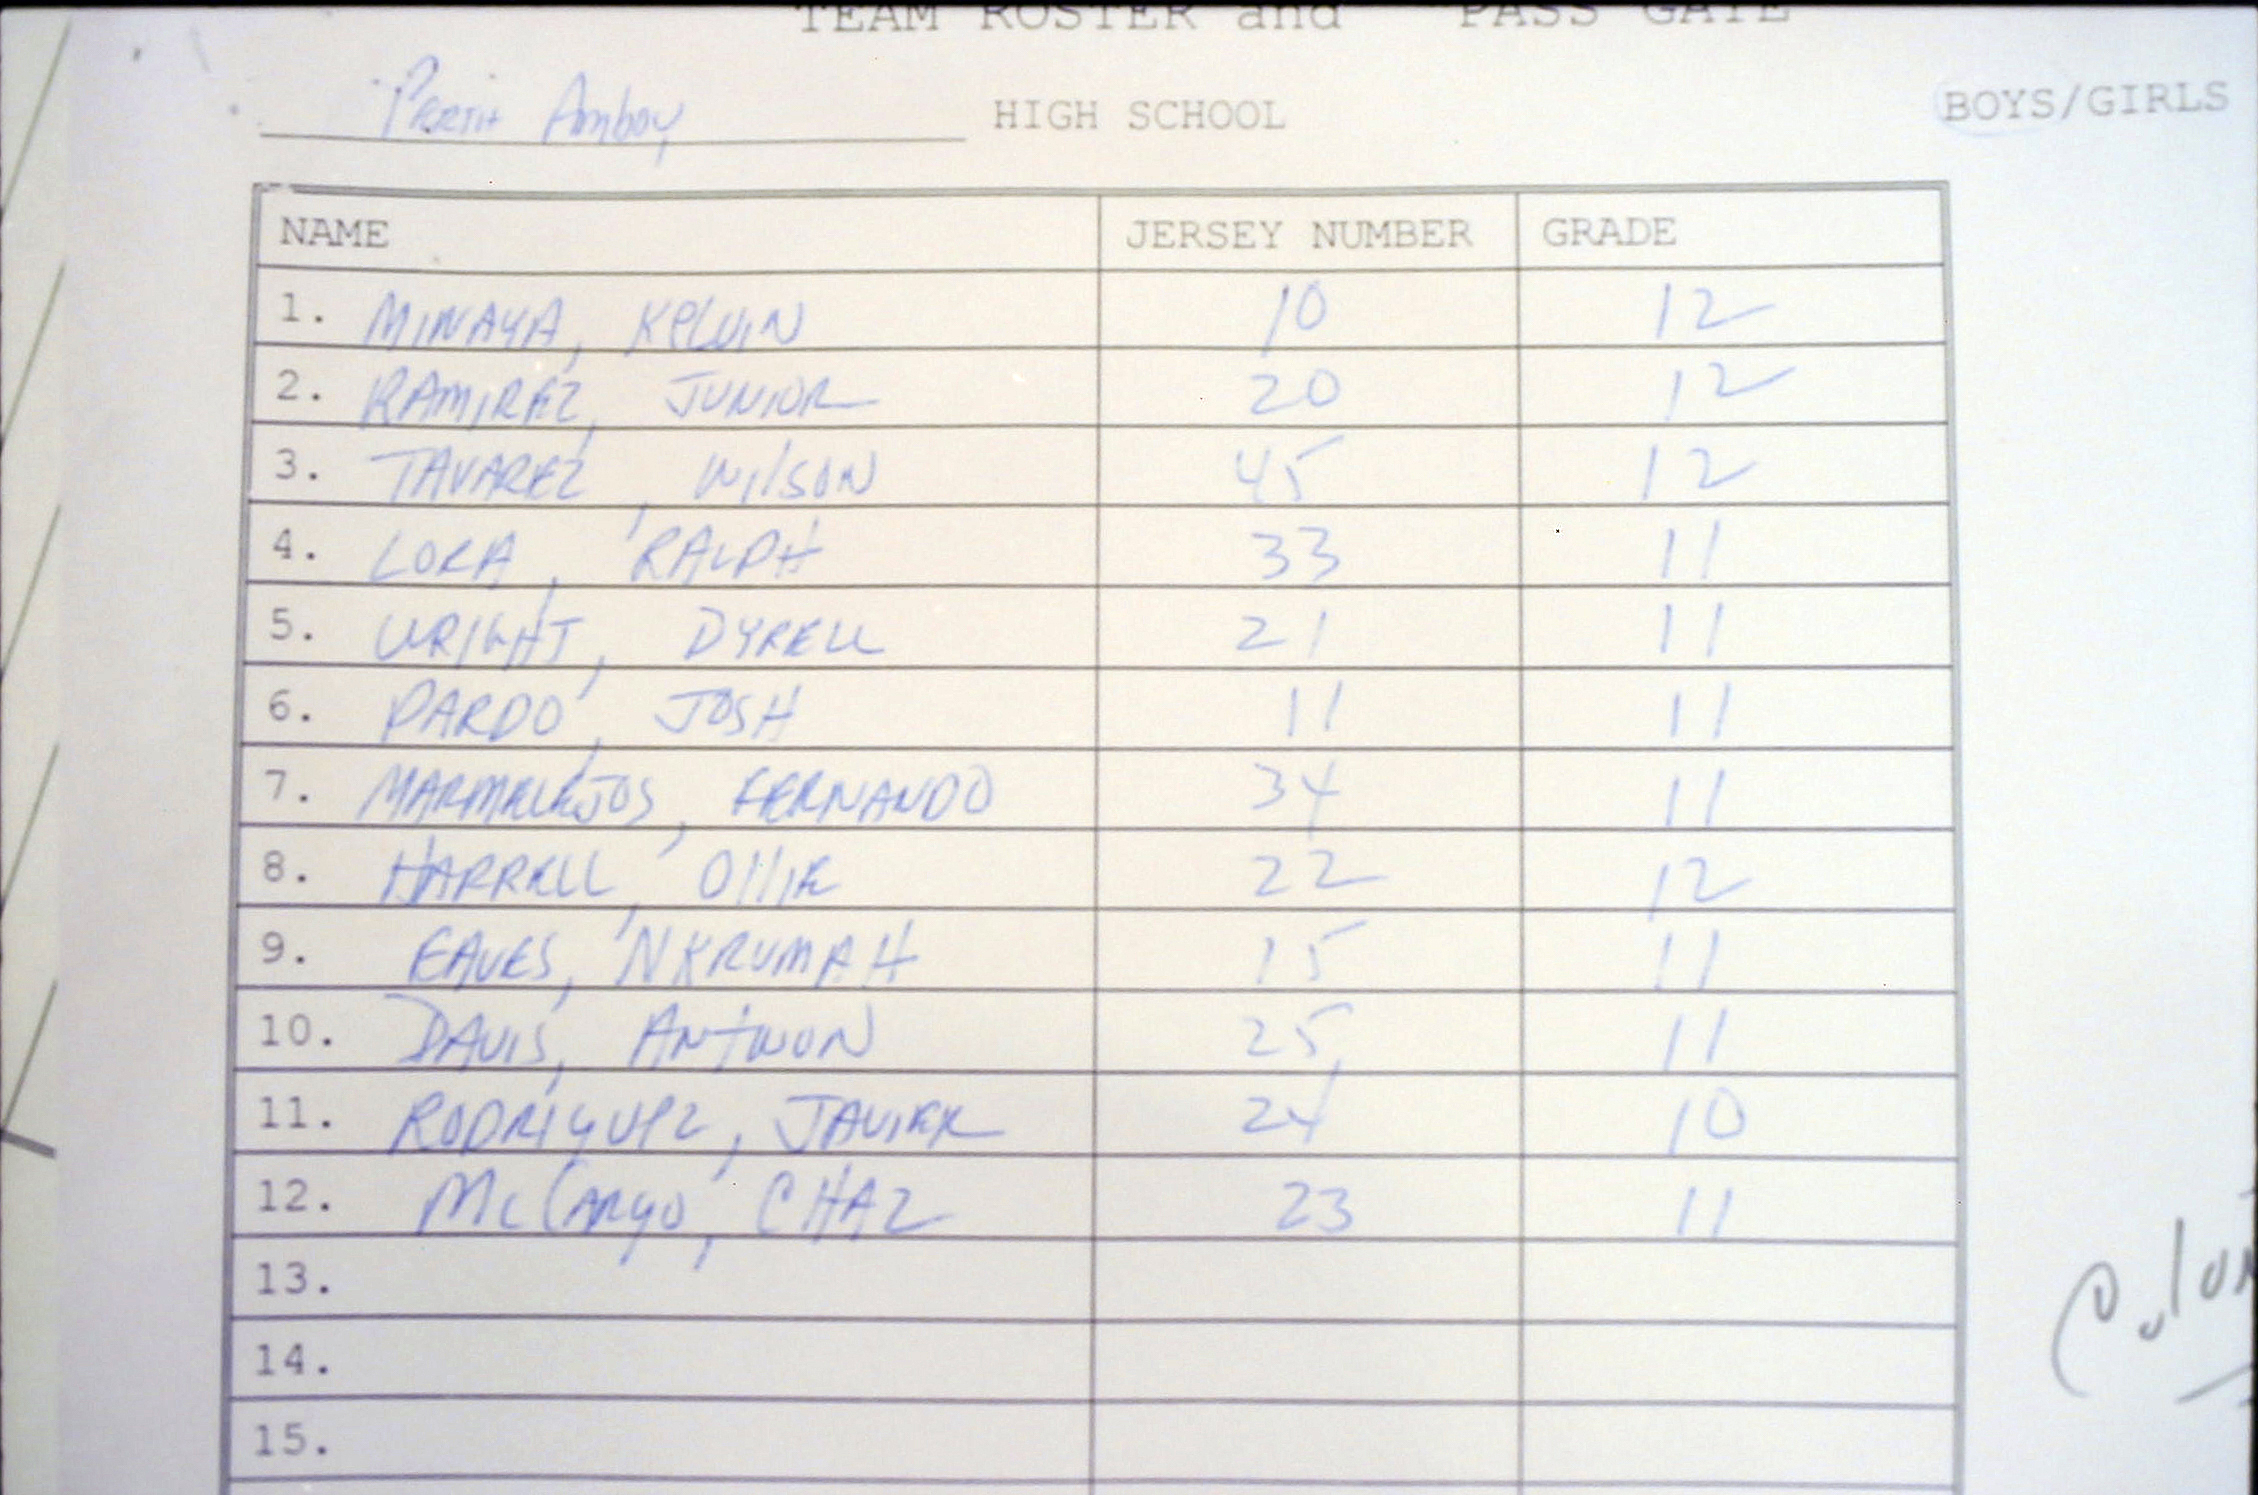 TEAM ROSTER and PASS GATE
Perth Amboy HIGH SCHOOL BOYS/GIRLS
NAME JERSEY NUMBER GRADE
1. MINAYA, KELVIN 10 12
2. RAMIREZ, JUNIOR 20 12
3. TAVAREZ, WILSON 45 12
4. LORA, RALPH 33 11
5. WRIGHT, DYRELL 21 11
6. PARDO, JOSH 11 11
7. MARMELEJOS, FERNANDO 34 11
8. HARRELL, OLLIE 22 12
9. EAVES, NKRUMAH 15 11
10. DAVIS, ANTWON 25 11
11. RODRIGUEZ, JAVIER 24 10
12. McCARGO, CHAZ 23 11
13.
14.
15.